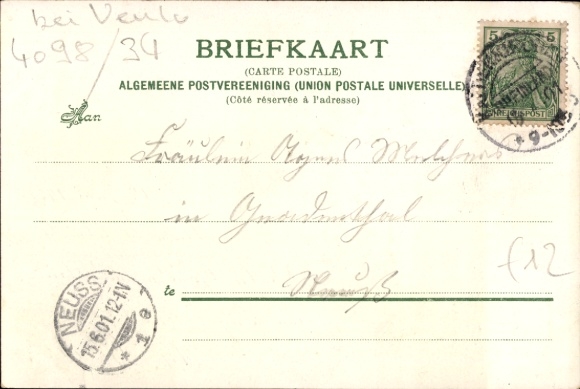 bei Venlo
4098/34
BRIEFKAART
(CARTE POSTALE)
ALGEMEENE POSTVEREENIGING (UNION POSTALE UNIVERSELLE)
(Côté réservée à l'adresse)
Aan
5 5
REICHSPOST
* 9-10
Fräulein Agnes Melchers
in Gnadenthal
te Neuß
f12
NEUSS
15.6.01.12-1N
* 1 e